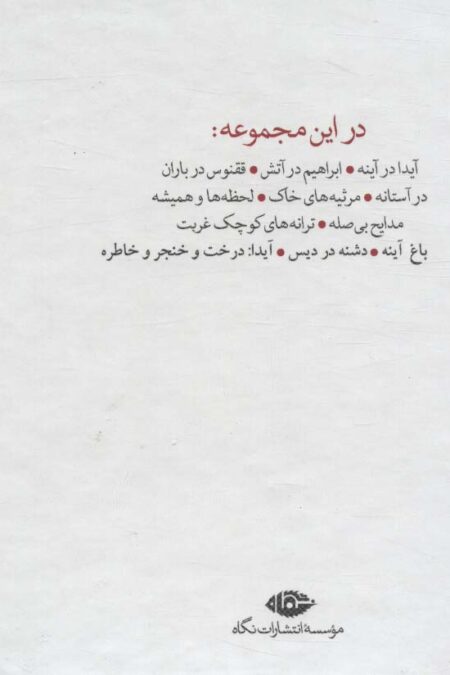 در این مجموعه:
آیدا در آینه • ابراهیم در آتش • ققنوس در باران
در آستانه • مرثیه‌های خاک • لحظه‌ها و همیشه
مدایح بی‌صله • ترانه‌های کوچک غربت
باغ آینه • دشنه در دیس • آیدا: درخت و خنجر و خاطره
مؤسسهٔ انتشارات نگاه